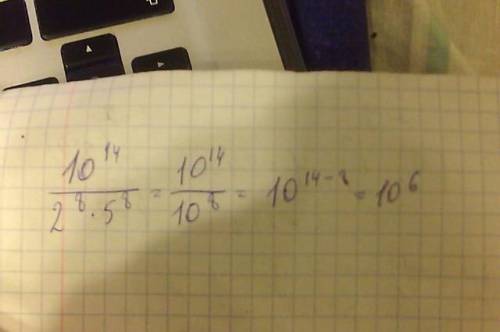 10^14 / 2^8 · 5^8 = 10^14 / 10^8 = 10^14-8 = 10^6